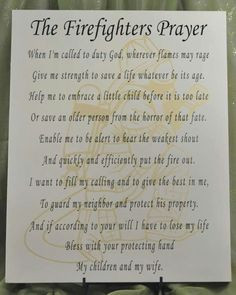 The Firefighters Prayer
When I'm called to duty God, wherever flames may rage
Give me strength to save a life whatever be its age.
Help me to embrace a little child before it is too late
Or save an older person from the horror of that fate.
Enable me to be alert to hear the weakest shout
And quickly and efficiently put the fire out.
I want to fill my calling and to give the best in me,
To guard my neighbor and protect his property.
And if according to your will I have to lose my life
Bless with your protecting hand
My children and my wife.